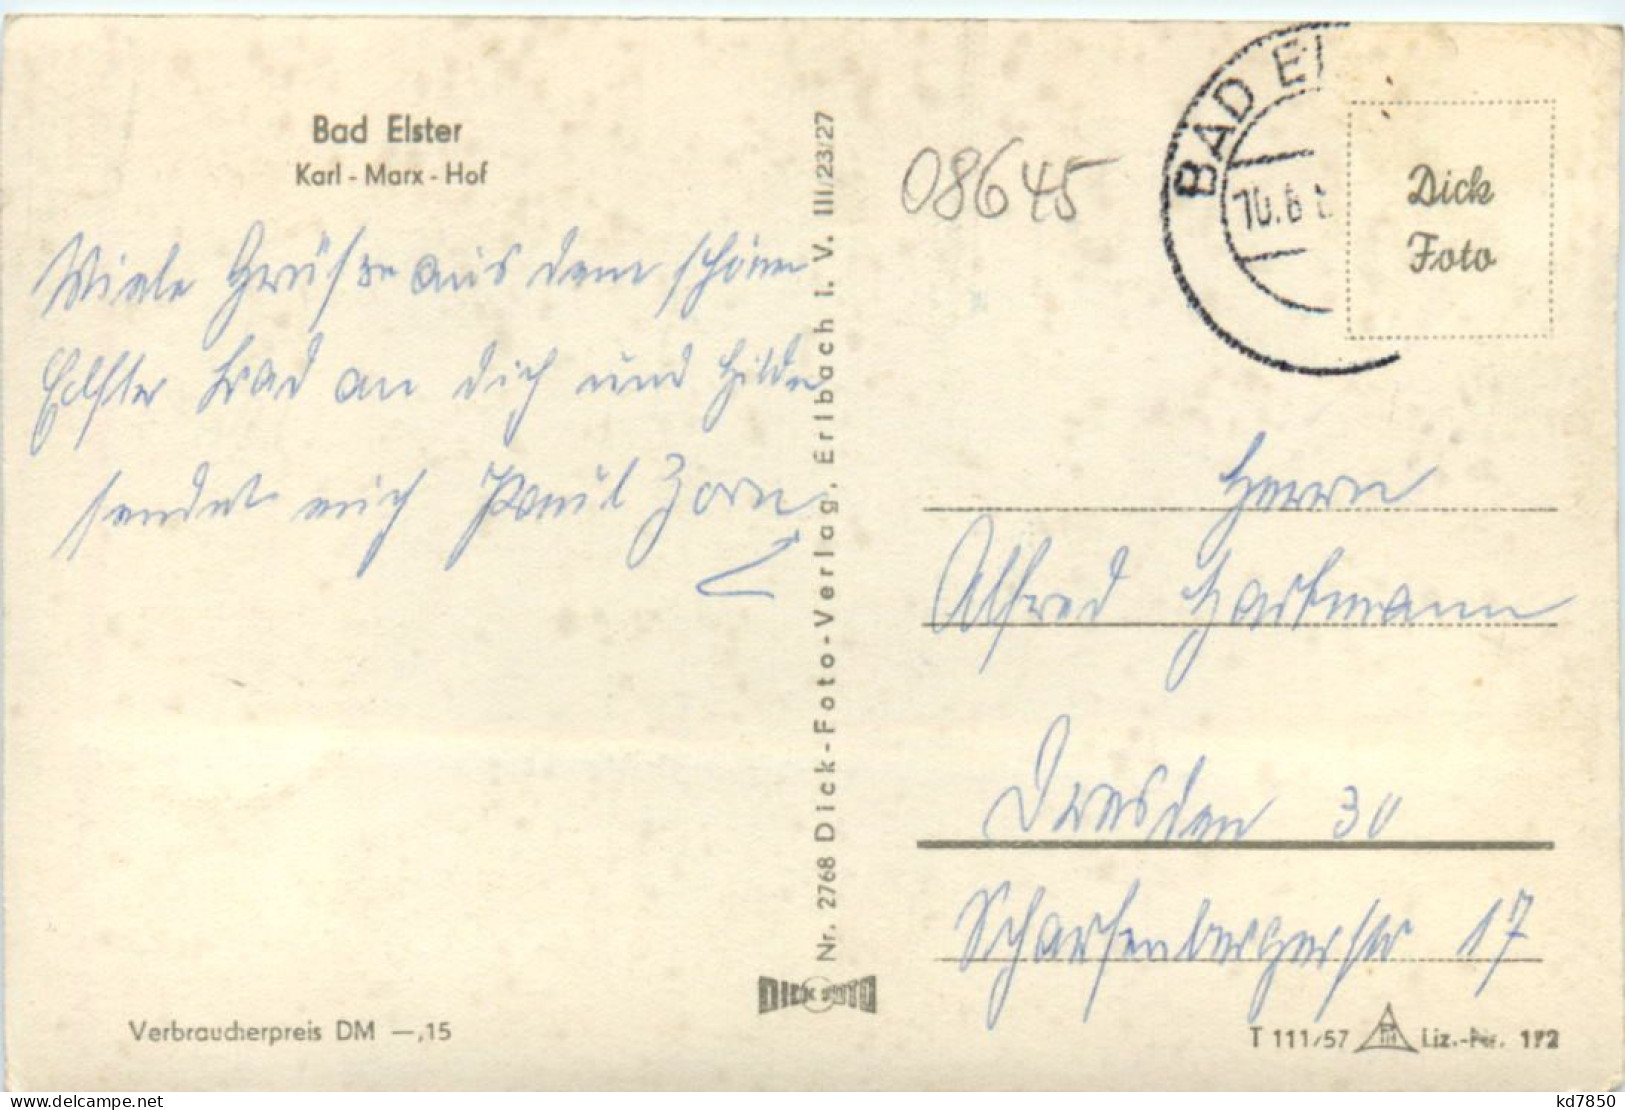 Bad Elster
Karl - Marx - Hof
Viele Grüße aus dem schönen
Elster Bad an dich und Hilde
sendet euch Paul Zorn
Verbraucherpreis DM —,15
Nr. 2768 Dick-Foto-Verlag, Erlbach i. V. III/23/27
DICK FOTO
08645
BAD EL
10.6
Dick
Foto
Herrn
Alfred Hartmann
Dresden 30
Scharfenbergerstr 17
T 111/57 Liz.-Nr. 172
kd7850
delcampe.net